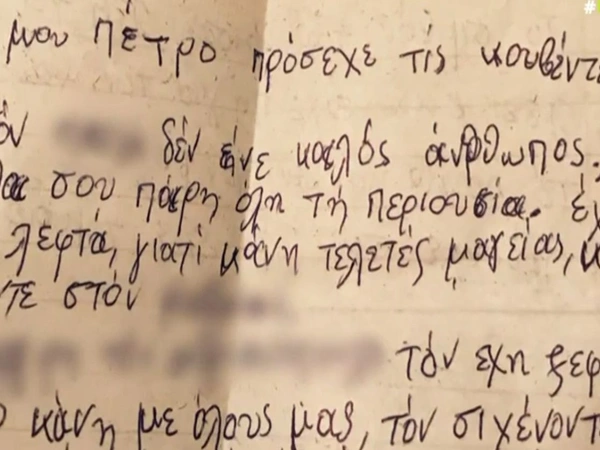 #
μου Πέτρο πρόσεχε τίς κουβέντε
όν δέν είνε καλός άνθρωπος.
σου πάρη όλη τή περιουσία. έχ
λεφτά, γιατί κάνη τελετές μαγείας, κ
τε στόν
τόν εχη ξεφ
κάνη με όλους μας, τόν σιχένοντ